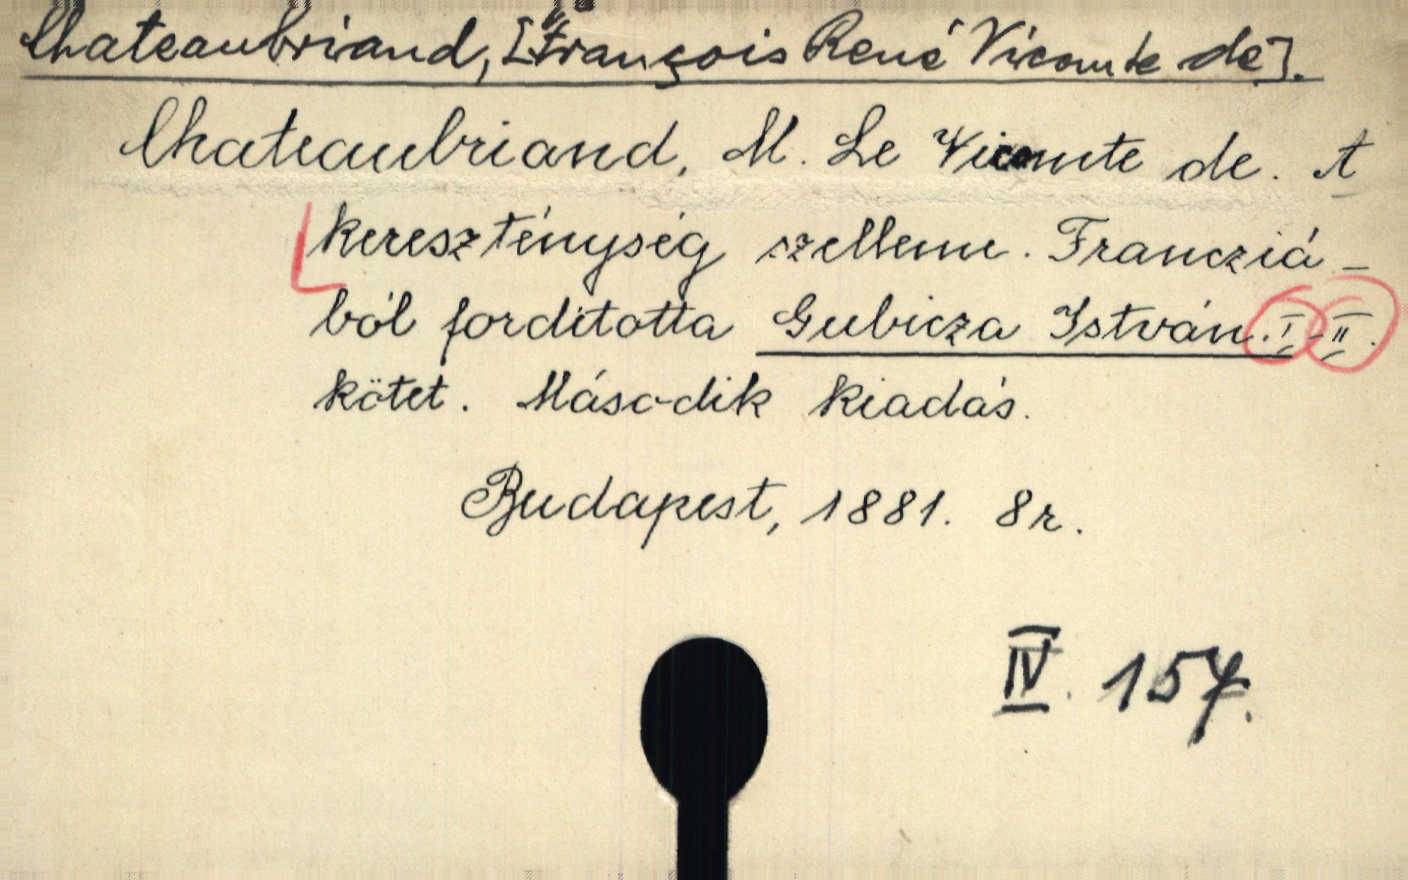 Chateaubriand, [François René Vicomte de].
Chateaubriand, M. Le Vicomte de. A
kereszténység szelleme. Francziá-
ból fordította Gubicza István. I-II.
kötet. Második kiadás.
Budapest, 1881. 8r.
IV. 157.